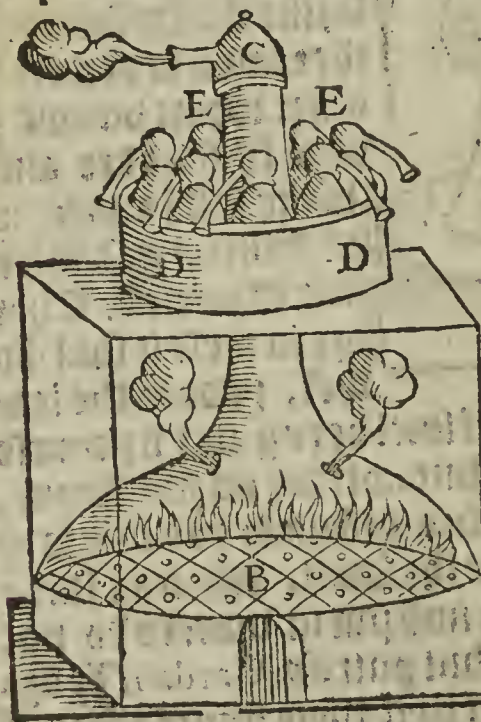 C
E E
D D
B